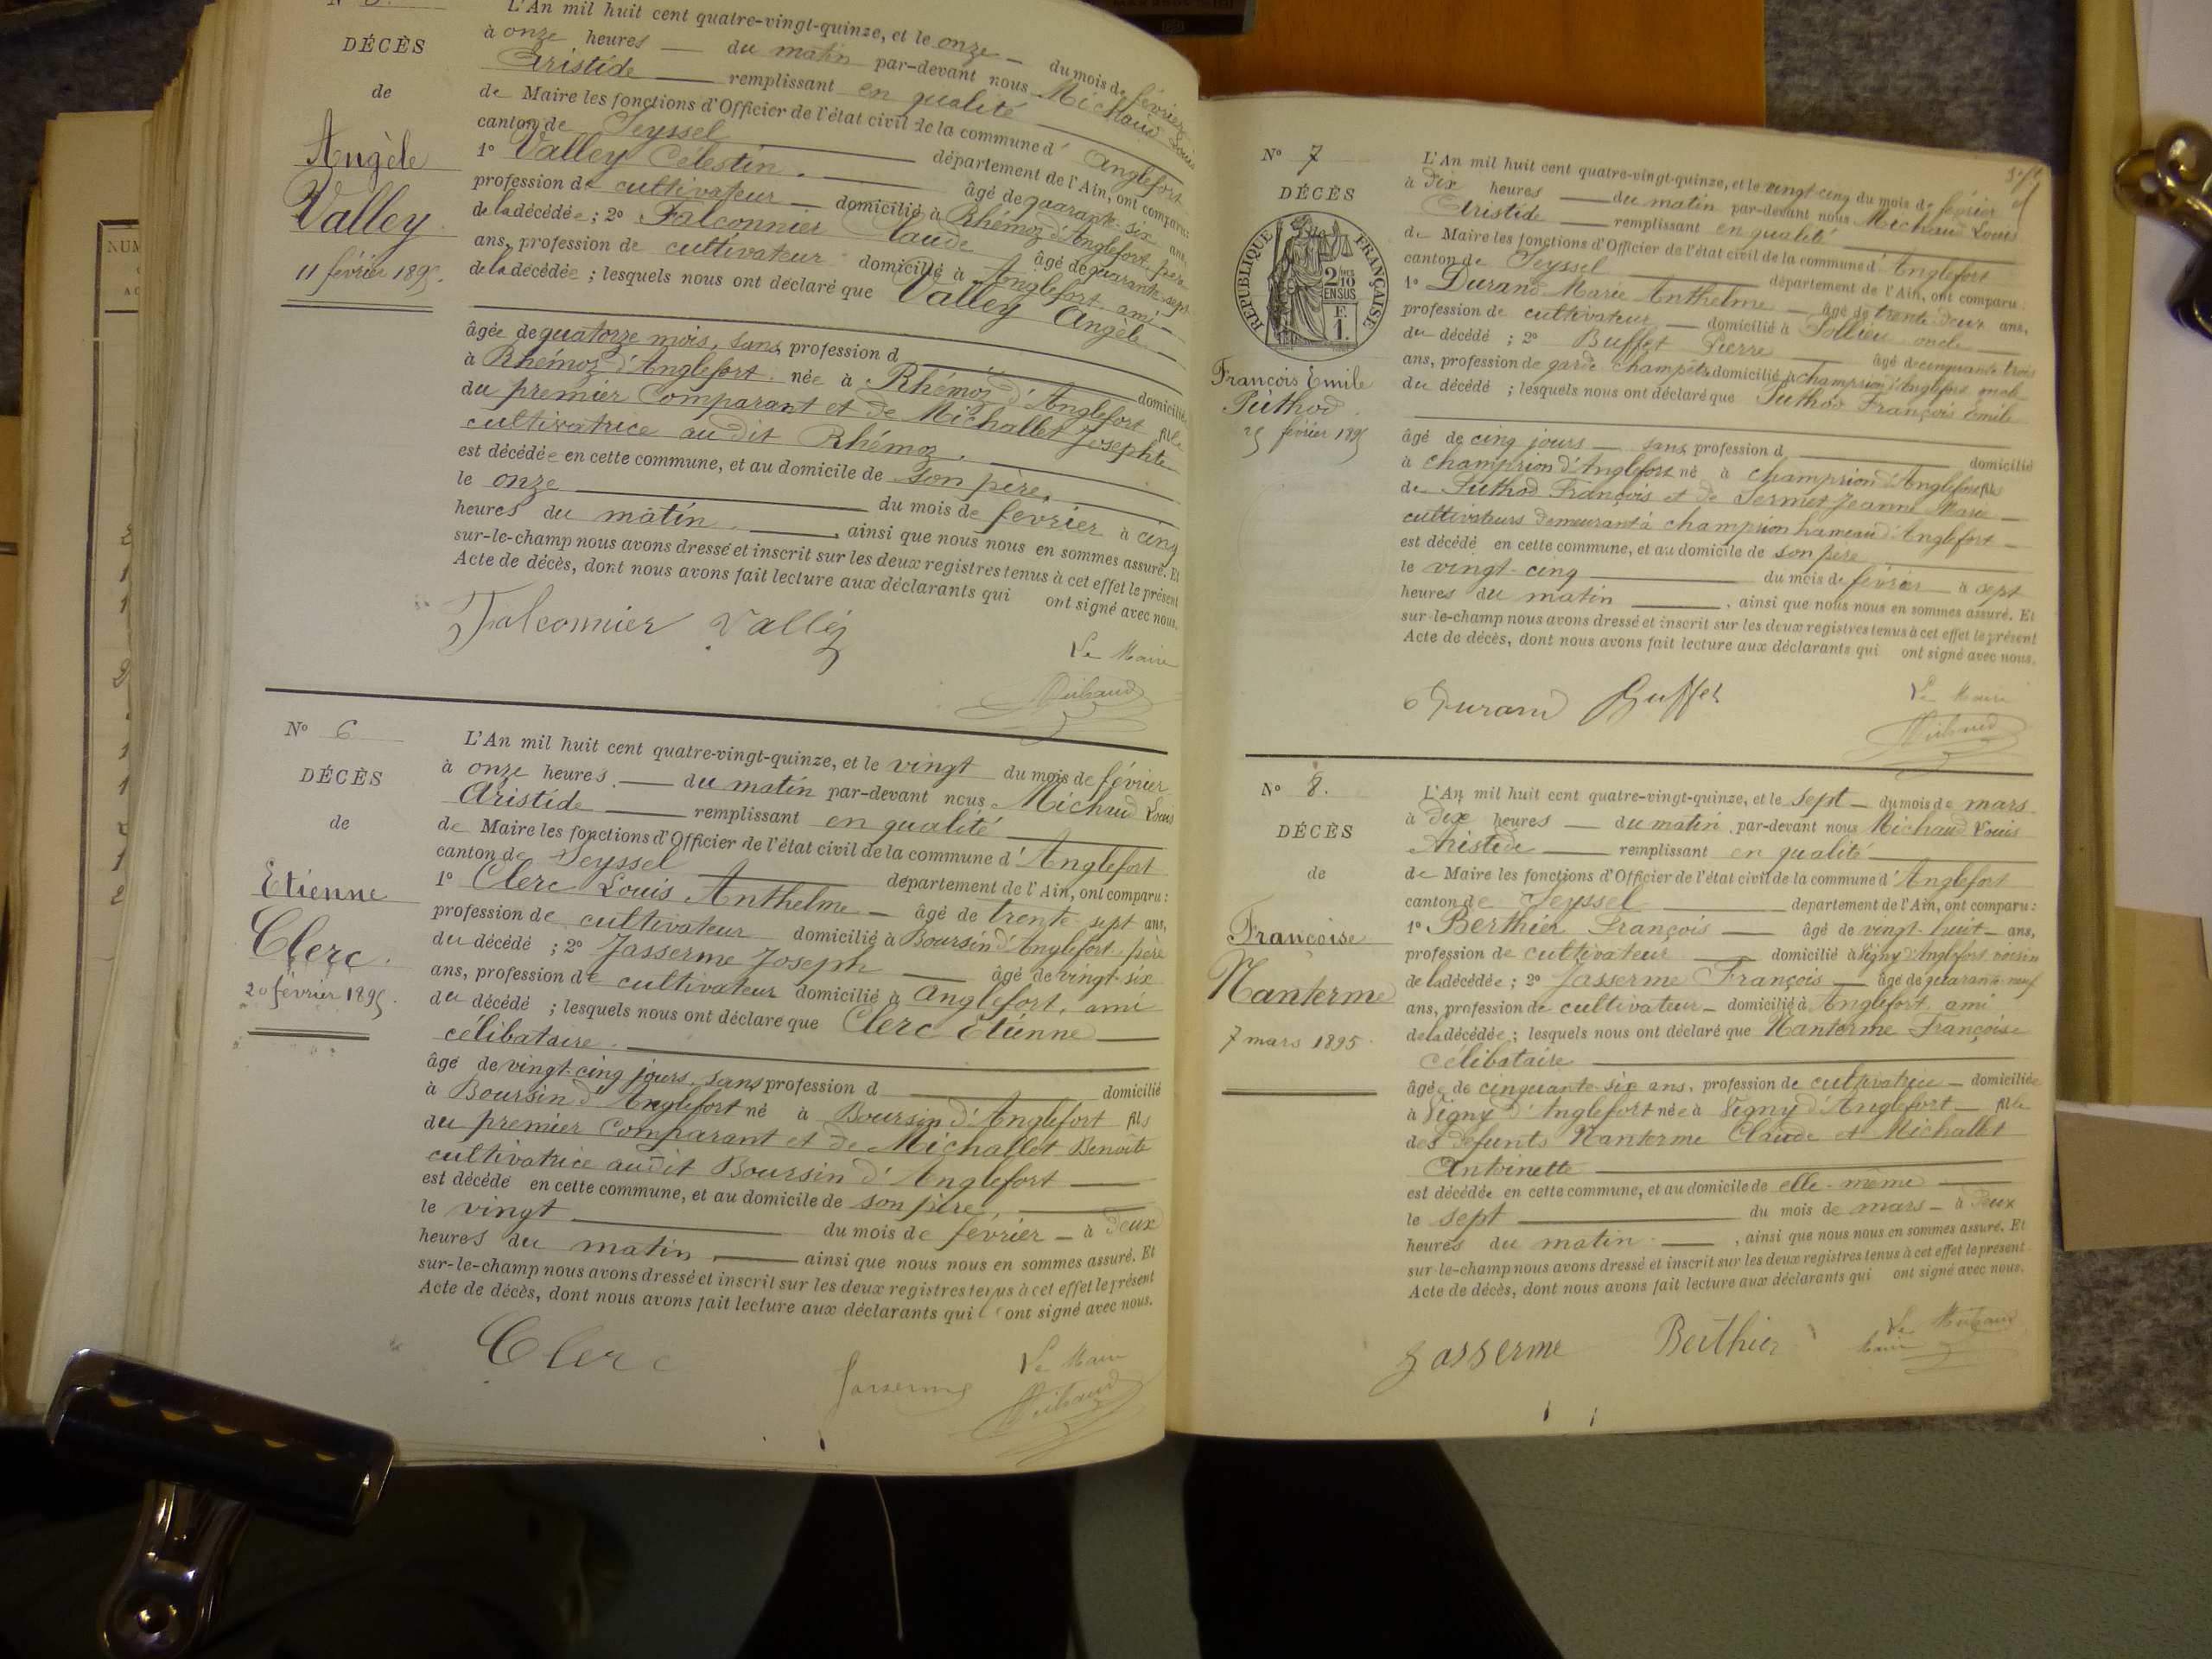 DÉCÈS
de
Angèle
Valley
11 février 1895.
L'An mil huit cent quatre-vingt-quinze, et le onze du mois de février
à onze heures du matin par-devant nous Michaud Louis
Aristide remplissant en qualité
de Maire les fonctions d'Officier de l'état civil de la commune d' Anglefort
canton de Seyssel département de l'Ain, ont comparu:
1° Valley Célestin. âgé de quarante-six ans,
profession de cultivateur domicilié à Rhémoz d'Anglefort père
de la décédée; 2° Falconnier Claude âgé de quarante-sept
ans, profession de cultivateur domicilié à Anglefort ami
de la décédée; lesquels nous ont déclaré que Valley Angèle
âgée de quatorze mois, sans profession d domiciliée
à Rhémoz d'Anglefort née à Rhémoz d'Anglefort fille
du premier Comparant et de Michallet Josephte
cultivatrice au dit Rhémoz.
est décédée en cette commune, et au domicile de son père,
le onze du mois de fevrier à cinq
heures du matin, ainsi que nous nous en sommes assuré. Et
sur-le-champ nous avons dressé et inscrit sur les deux registres tenus à cet effet le présent
Acte de décès, dont nous avons fait lecture aux déclarants qui ont signé avec nous.
Falconnier Valley
Le Maire
Michaud
N° 6
DÉCÈS
de
Etienne
Clerc.
20 février 1895.
L'An mil huit cent quatre-vingt-quinze, et le vingt du mois de février
à onze heures. du matin par-devant nous Michaud Louis
Aristide remplissant en qualité
de Maire les fonctions d'Officier de l'état civil de la commune d' Anglefort
canton de Seyssel département de l'Ain, ont comparu:
1° Clerc Louis Anthelme âgé de trente-sept ans,
profession de cultivateur domicilié à Boursin d'Anglefort, père
du décédé ; 2° Jasserme Joseph âgé de vingt-six
ans, profession de cultivateur domicilié à Anglefort, ami
du décédé ; lesquels nous ont déclaré que Clerc Etienne
célibataire.
âgé de vingt-cinq jours, sans profession d domicilié
à Boursin d'Anglefort né à Boursin d'Anglefort fils
du premier Comparant et de Michallet Benoîte
cultivatrice audit Boursin d'Anglefort
est décédé en cette commune, et au domicile de son père,
le vingt du mois de février à deux
heures du matin, ainsi que nous nous en sommes assuré. Et
sur-le-champ nous avons dressé et inscrit sur les deux registres tenus à cet effet le présent
Acte de décès, dont nous avons fait lecture aux déclarants qui ont signé avec nous.
Clerc Jasserme
Le Maire
Michaud
N° 7
DÉCÈS
RÉPUBLIQUE FRANÇAISE
2/10 EN SUS
F.
1.
François Emile
Puthod.
25 février 1895
L'An mil huit cent quatre-vingt-quinze, et le vingt-cinq du mois de février
à dix heures du matin par-devant nous Michaud Louis
Aristide remplissant en qualité
de Maire les fonctions d'Officier de l'état civil de la commune d' Anglefort
canton de Seyssel département de l'Ain, ont comparu:
1° Durand Marie Anthelme âgé de trente-deux ans,
profession de cultivateur domicilié à Pollieu oncle
du décédé ; 2° Buffet Pierre âgé de cinquante trois
ans, profession de garde champêtre domicilié à Champrion d'Anglefort
du décédé ; lesquels nous ont déclaré que Puthod François Emile
âgé de cinq jours sans profession d domicilié
à Champrion d'Anglefort né à Champrion d'Anglefort fils
de Puthod François et de Jeanne Marie
cultivateurs demeurant à Champrion hameau d'Anglefort
est décédé en cette commune, et au domicile de son père
le vingt-cinq du mois de février à sept
heures du matin, ainsi que nous nous en sommes assuré. Et
sur-le-champ nous avons dressé et inscrit sur les deux registres tenus à cet effet le présent
Acte de décès, dont nous avons fait lecture aux déclarants qui ont signé avec nous.
Durand Buffet
Le Maire
Michaud
N° 8.
DÉCÈS
de
Françoise
Nanterme
7 mars 1895.
L'An mil huit cent quatre-vingt-quinze, et le sept du mois de mars
à dix heures du matin par-devant nous Michaud Louis
Aristide remplissant en qualité
de Maire les fonctions d'Officier de l'état civil de la commune d' Anglefort
canton de Seyssel département de l'Ain, ont comparu:
1° Berthier François âgé de vingt-huit ans,
profession de cultivateur domicilié à Vigny d'Anglefort voisin
de la décédée; 2° Jasserme François âgé de quarante-neuf
ans, profession de cultivateur domicilié à Anglefort, ami
de la décédée; lesquels nous ont déclaré que Nanterme Françoise
célibataire
âgée de cinquante-six ans, profession de cultivatrice domiciliée
à Vigny d'Anglefort née à Vigny d'Anglefort fille
des défunts Nanterme Claude et Michallet
Antoinette
est décédée en cette commune, et au domicile de elle-même
le sept du mois de mars à deux
heures du matin, ainsi que nous nous en sommes assuré. Et
sur-le-champ nous avons dressé et inscrit sur les deux registres tenus à cet effet le présent
Acte de décès, dont nous avons fait lecture aux déclarants qui ont signé avec nous.
Jasserme Berthier
Le Maire Michaud